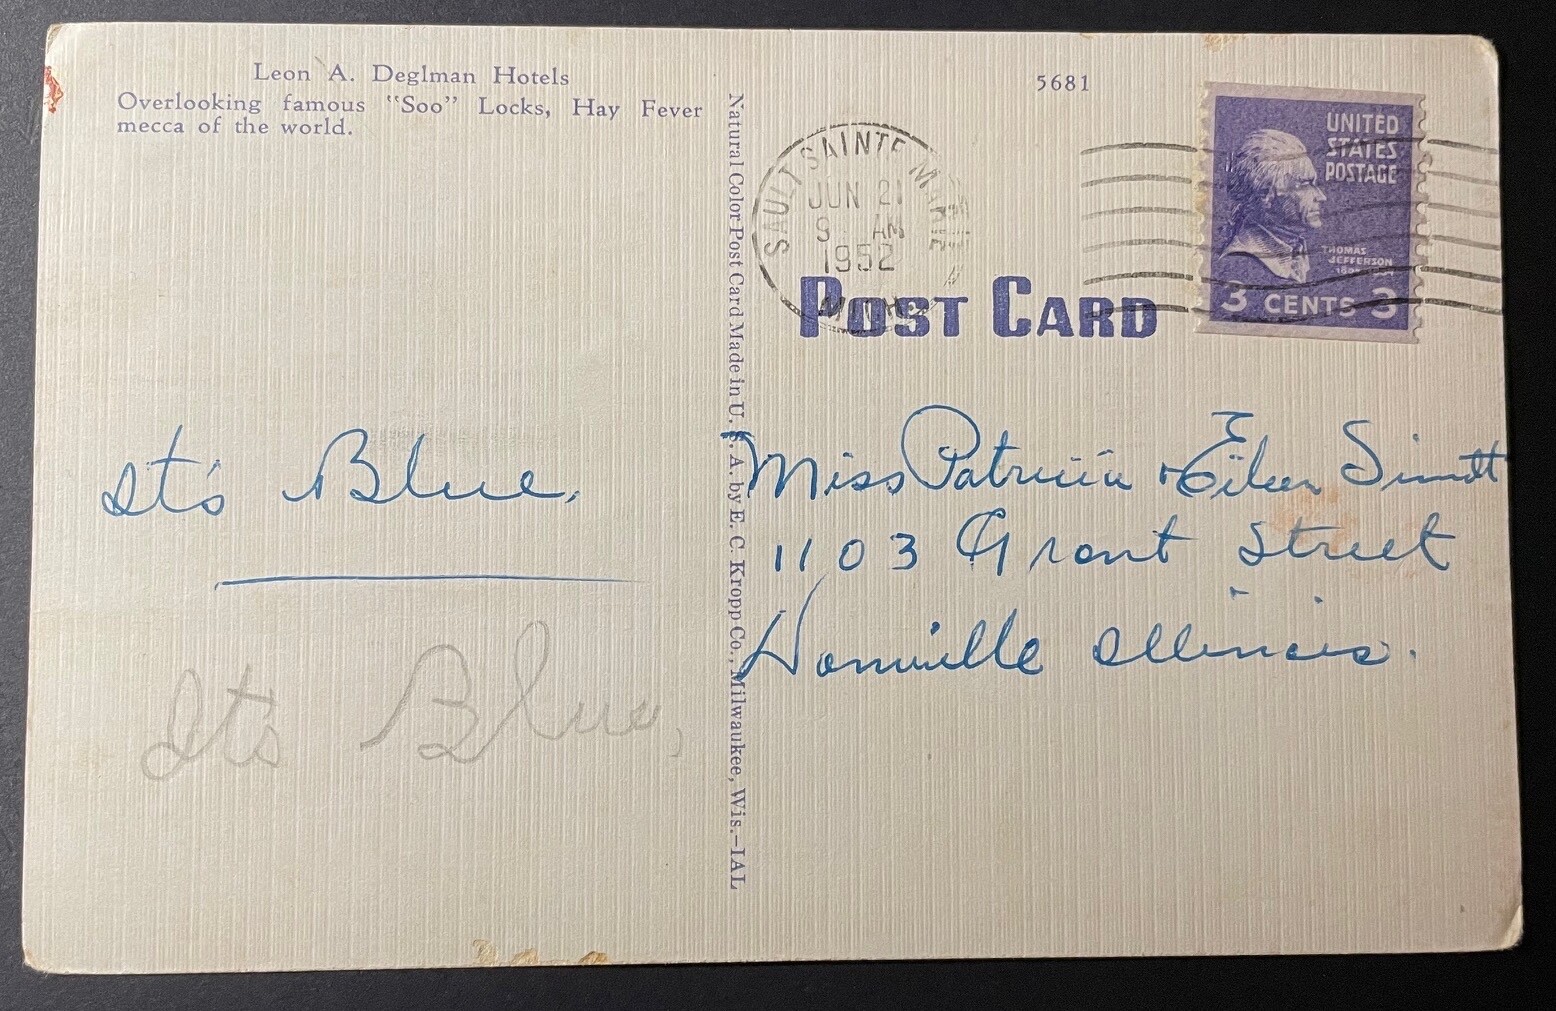 Leon A. Deglman Hotels
Overlooking famous "Soo" Locks, Hay Fever
mecca of the world.
It's Blue.
It's Blue,
Natural Color Post Card Made in U. S. A. by E. C. Kropp Co., Milwaukee, Wis.—IAL
5681
SAULT SAINTE MARIE
JUN 21
9 AM
1952
MICH.
POST CARD
UNITED
STATES
POSTAGE
THOMAS
JEFFERSON
3 CENTS 3
Miss Patricia & Eileen
1103 Grant Street
Danville Illinois.